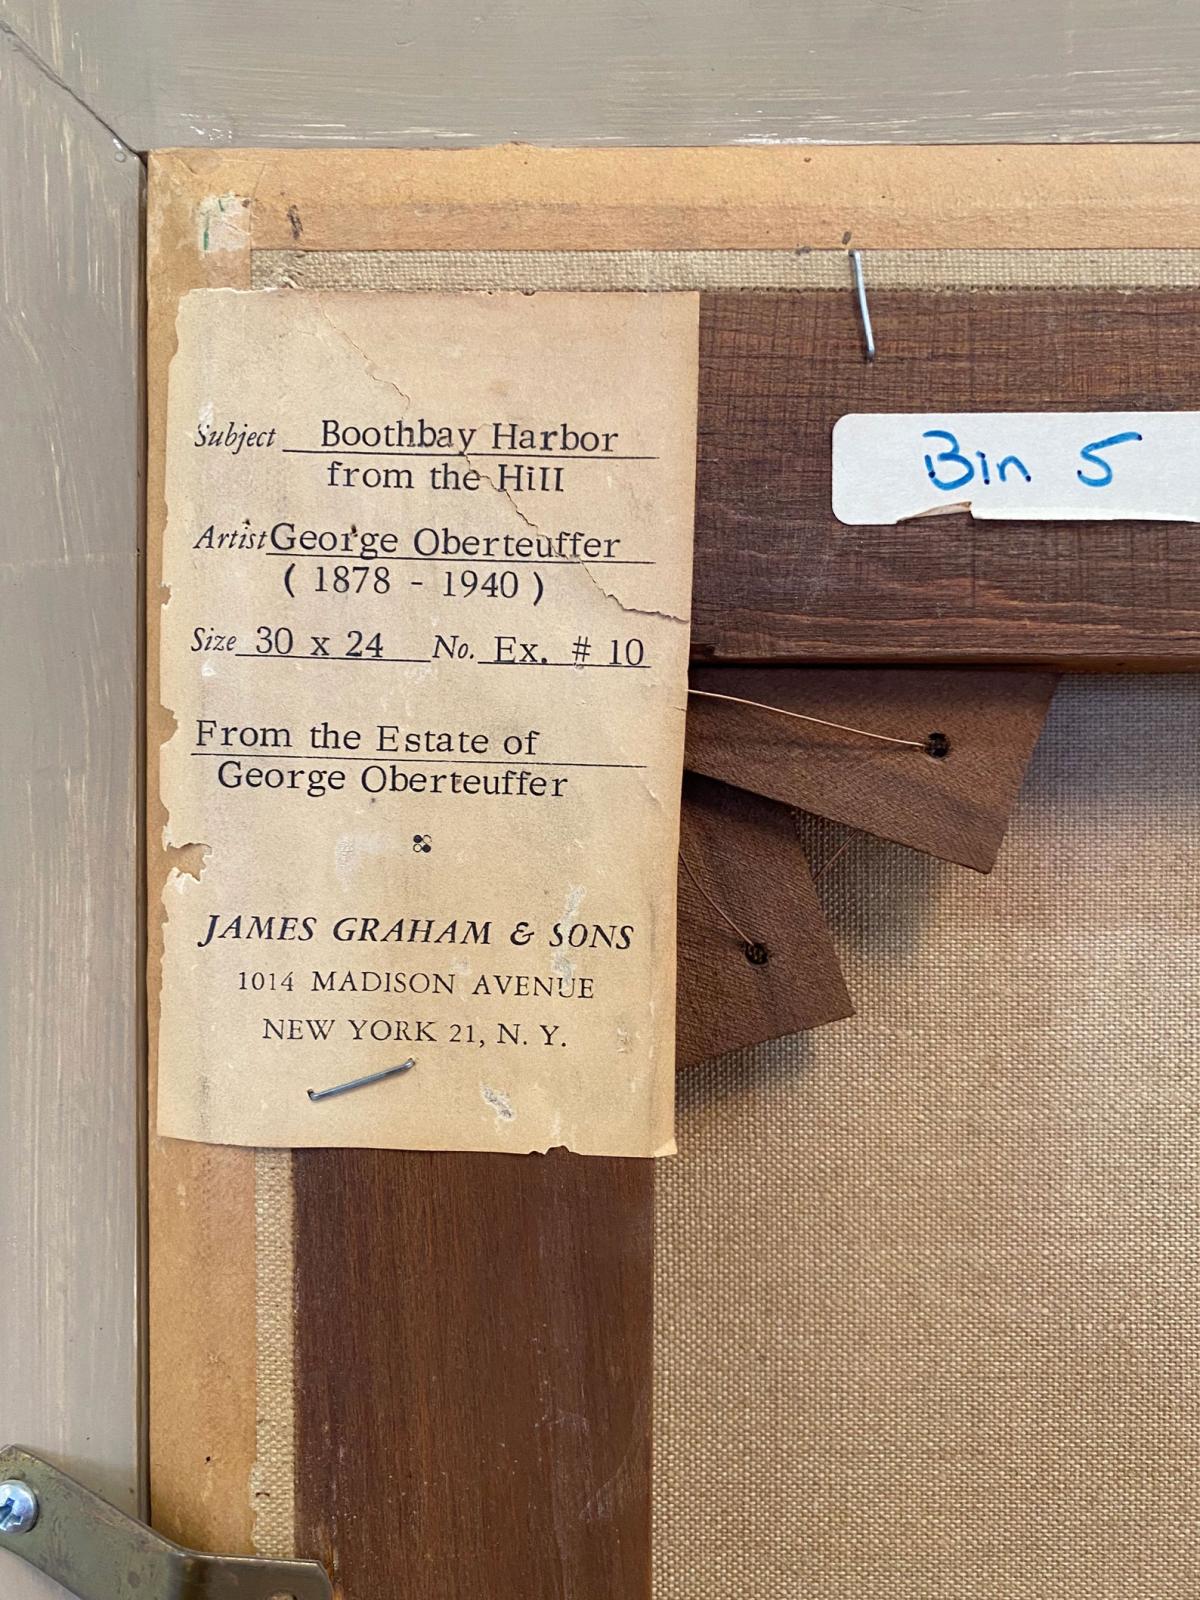 Subject Boothbay Harbor
from the Hill
Artist George Oberteuffer
( 1878 - 1940 )
Size 30 x 24 No. Ex. # 10
From the Estate of
George Oberteuffer
JAMES GRAHAM & SONS
1014 MADISON AVENUE
NEW YORK 21, N. Y.
Bin 5